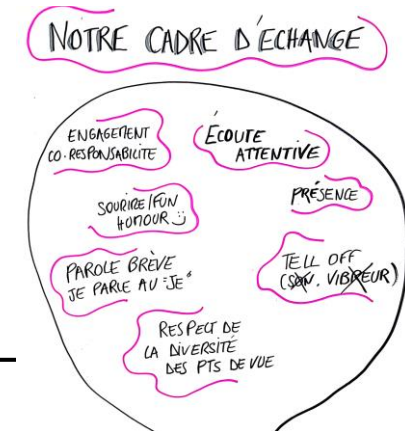 NOTRE CADRE D'ECHANGE
ENGAGEMENT
CO-RESPONSABILITE
ÉCOUTE
ATTENTIVE
SOURIRE/FUN
HUMOUR
PRÉSENCE
PAROLE BRÈVE
JE PARLE AU "JE"
TELL OFF
(SON, VIBREUR)
RESPECT DE
LA DIVERSITÉ
DES PTS DE VUE